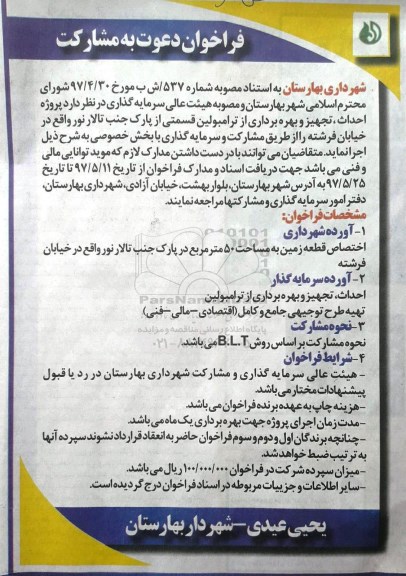 فراخوان دعوت به مشارکت
شهرداری بهارستان به استناد مصوبه شماره ۵۳۷/ش ب مورخ ۹۷/۴/۳۰ شورای
محترم اسلامی شهر بهارستان و مصوبه هیئت عالی سرمایه گذاری در نظر دارد پروژه
احداث ، تجهیز و بهره برداری از ترامبولین قسمتی از پارک جنب تالار نور واقع در
خیابان فرشته را از طریق مشارکت و سرمایه گذاری با بخش خصوصی به شرح ذیل
اجرا نماید. متقاضیان می توانند با در دست داشتن مدارک لازم که موید توانایی مالی
و فنی می باشد جهت دریافت اسناد و مدارک فراخوان از تاریخ ۹۷/۵/۱۱ تا تاریخ
۹۷/۵/۲۵ به آدرس شهر بهارستان، بلوار بهشت، خیابان آزادی، شهرداری بهارستان،
دفتر امور سرمایه گذاری و مشارکتها مراجعه نمایند.
مشخصات فراخوان:
۱- آورده شهرداری
اختصاص قطعه زمین به مساحت ۵۰ متر مربع در پارک جنب تالار نور واقع در خیابان
فرشته
۲- آورده سرمایه گذار
احداث، تجهیز و بهره برداری از ترامبولین
تهیه طرح توجیهی جامع و کامل (اقتصادی – مالی – فنی)
۳- نحوه مشارکت
نحوه مشارکت بر اساس روش B.L.T می باشد.
۴- شرایط فراخوان
- هیئت عالی سرمایه گذاری و مشارکت شهرداری بهارستان در رد یا قبول
پیشنهادات مختار می باشد.
- هزینه چاپ به عهده برنده فراخوان می باشد.
- مدت زمان اجرای پروژه جهت بهره برداری یک ماه می باشد.
- چنانچه برندگان اول و دوم و سوم فراخوان حاضر به انعقاد قرارداد نشوند سپرده آنها
به ترتیب ضبط خواهد شد.
- میزان سپرده شرکت در فراخوان ۱۰۰/۰۰۰/۰۰۰ ریال می باشد.
- سایر اطلاعات و جزییات مربوطه در اسناد فراخوان درج گردیده است.
یحیی عیدی – شهردار بهارستان